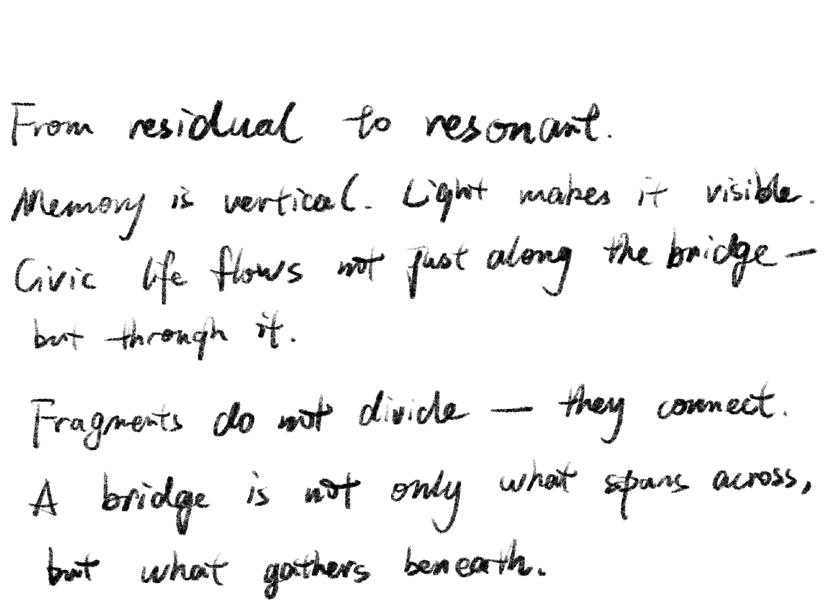 From residual to resonant.
Memory is vertical. Light makes it visible.
Civic life flows not just along the bridge —
but through it.
Fragments do not divide — they connect.
A bridge is not only what spans across,
but what gathers beneath.